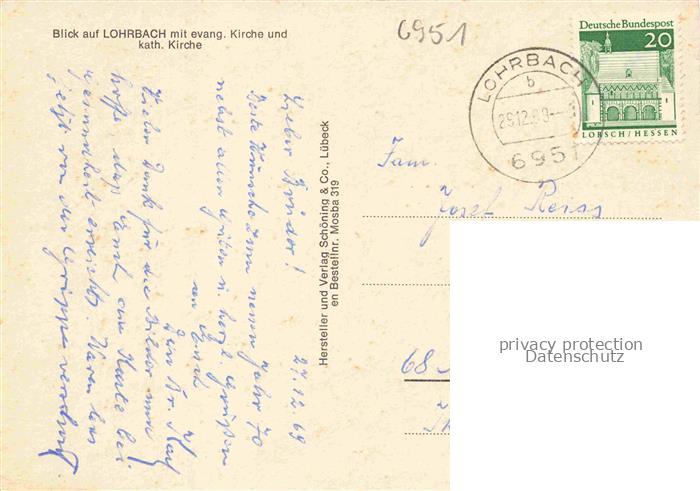 Blick auf LOHRBACH mit evang. Kirche und
kath. Kirche
6951
Deutsche Bundespost
20
LORSCH/HESSEN
LOHRBACH
b
29.12.69
6951
Hersteller und Verlag Schöning & Co., Lübeck
en Bestellnr. Mosba 319
27.12.69
Lieber Bruder!
Beste Wünsche zum neuen Jahr 70
nebst allen Guten u. herzl. Grüßen
von Euch
Euer Br. Karl
Vielen Dank für die Bilder und
hoffe daß Euch die Karte bei
Gesundheit erreicht. Waren bis
jetzt von der Grippe verschont.
Fam.
Josef Reiss
68
privacy protection
Datenschutz